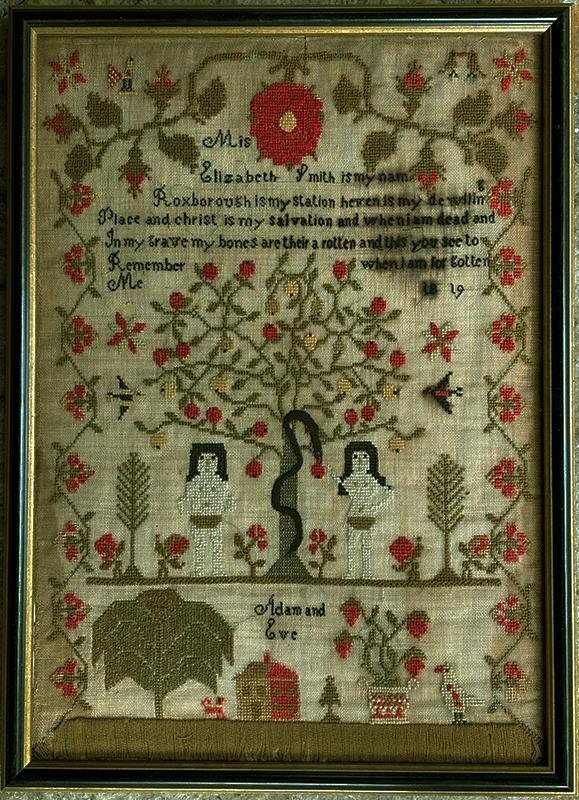 Mis
Elizabeth Smith is my nam
Roxborough is my station heven is my dewillin g
Place and christ is my salvation and when i am dead and
In my grave my bones are their a rotten and this you see to
Remember when i am for gotten
Me 18 19
Adam and
Eve